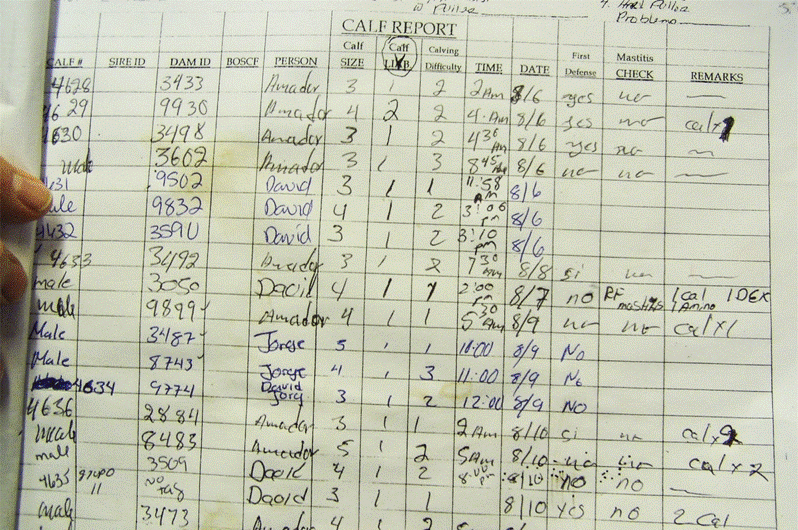 4. Hard Puller
Problems
CALF REPORT
CALF # SIRE ID DAM ID BOSCF PERSON Calf SIZE Calf LIMB Calving Difficulty TIME DATE First Defense Mastitis CHECK REMARKS
4628 3433 Amador 3 1 2 2 Am 8/6 yes no —
4629 9930 Amador 4 2 2 4. Am 8/6 yes no cal x 1
4630 3498 Amador 3 1 2 4 30 Am 8/6 yes no —
male 3602 Amador 3 1 3 8 45 8/6 no no —
9502 David 3 1 1 11:58 Am 8/6
9832 David 4 1 2 3:06 pm 8/6
4432 David 3 1 2 3:10 pm 8/6
4633 3492 Amador 3 1 2 7 30 8/8 si no —
male 3050 David 4 1 2:00 pm 8/7 no RF mastitis 1 cal 1 DEX 1 Amino
male 9899 Amador 4 1 1 5 30 Am 8/9 no no Cal x 1
Male 3487 Jorge 5 1 1 8/9 No
Male 8743 Jorge 4 1 3 11:00 8/9 No
4634 9774 David Jorg 3 1 2 12:00 8/9 NO
4636 2884 Amador 3 1 1 2 Am 8/10 si no cal x 2
male 8483 Amador 5 1 2 5 Am 8/10 no no cal x 2
male 3509 David 4 1 2 8:00 pm 8/10 no no —
4635 11 NO TAG David 3 1 1 8/10 yes no 2 Cal
male 3473 Amador 4 1 2